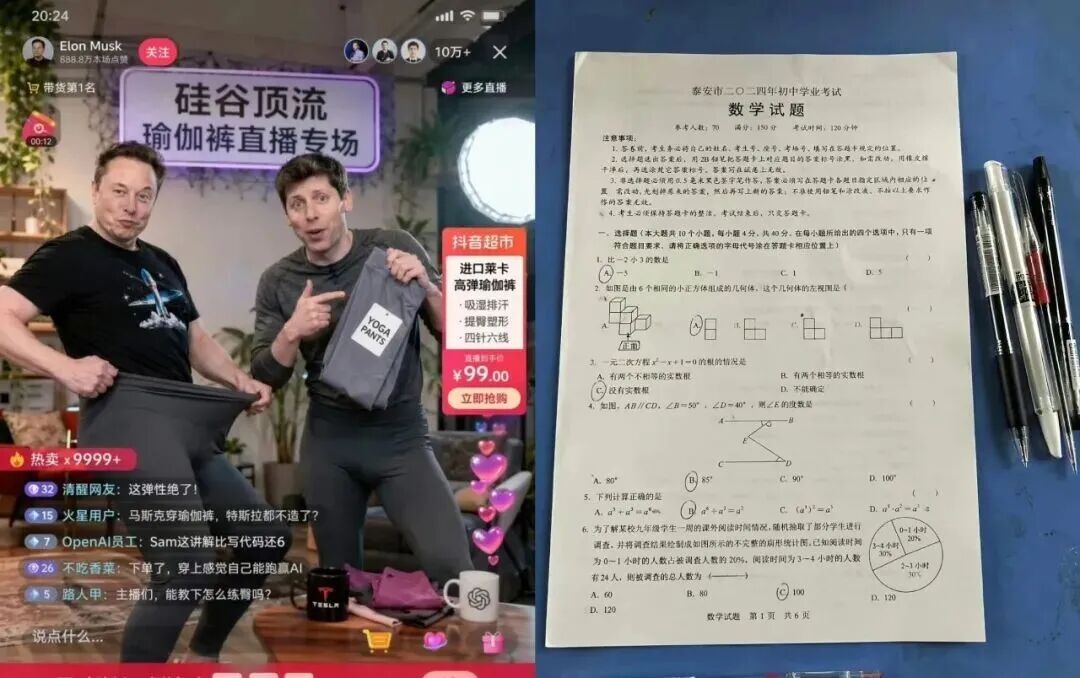 20:24
Elon Musk
888.8万本场点赞
关注
10万+
带货第1名
更多直播
00:12
硅谷顶流
瑜伽裤直播专场
抖音超市
进口莱卡
高弹瑜伽裤
·吸湿排汗
·提臀塑形
·四针六线
直播到手价
¥99.00
立即抢购
YOGA
PANTS
热卖 x9999+
32 清醒网友:这弹性绝了!
15 火星用户:马斯克穿瑜伽裤,特斯拉都不造了?
7 OpenAI员工:Sam这讲解比写代码还6
26 不吃香菜:下单了,穿上感觉自己能跑赢AI
5 路人甲:主播们,能教下怎么练臀吗?
TESLA
说点什么...
泰安市二〇二四年初中学业考试
数学试题
参考人数:70 满分:150分 考试时间:120分钟
注意事项:
1. 答卷前,考生务必将自己的姓名、考生号、座号、考场号,填写在答题卡规定的位置。
2. 选择题选出答案后,用2B铅笔把答题卡上对应题目的答案标号涂黑,如需改动,用橡皮擦
干净后,再选涂其它答案标号。答案写在试卷上无效。
3. 非选择题必须用0.5毫米黑色签字笔作答,答案必须写在答题卡各题目指定区域内相应的位
置,需改动,先划掉原来的答案,然后再写上新的答案;不准使用铅笔和涂改液。不按以上要求作
答的答案无效。
4. 考生必须保持答题卡的整洁。考试结束后,只交答题卡。
一、选择题(本大题共10个小题,每小题4分,共40分。在每小题所给出的四个选项中,只有一项
符合题目要求,请将正确选项的字母代号涂在答题卡相应位置上)
1. 比-2小3的数是 ( )
A. -5 B. -1 C. 1 D. 5
2. 如图是由6个相同的小正方体组成的几何体,这个几何体的左视图是( )
A. A. C. D.
正面
3. 一元二次方程x²-x+1=0的根的情况是 ( )
A. 有两个不相等的实数根 B. 有两个相等的实数根
C. 没有实数根 D. 不能确定
4. 如图,AB∥CD,∠B=50°,∠D=40°,则∠E的度数是 ( )
A B
E
C D
A. 80° B. 85° C. 90° D. 100°
5. 下列计算正确的是 ( )
A. B. C. D.
6. 为了解某校九年级学生一周的课外阅读时间情况,随机抽取了部分学生进行
调查,并将调查结果绘制成如图所示的不完整的扇形统计图,已知阅读时间
为0~1小时的人数占被调查人数的20%,阅读时间为3~4小时的人数
有24人,则被调查的总人数为 ( )
0~1小时
20%
3~4小时
30%
2~3小时
30%
A. 60 B. 80 C. 100 D. 120
D. 120
数学试题 第1页 共6页